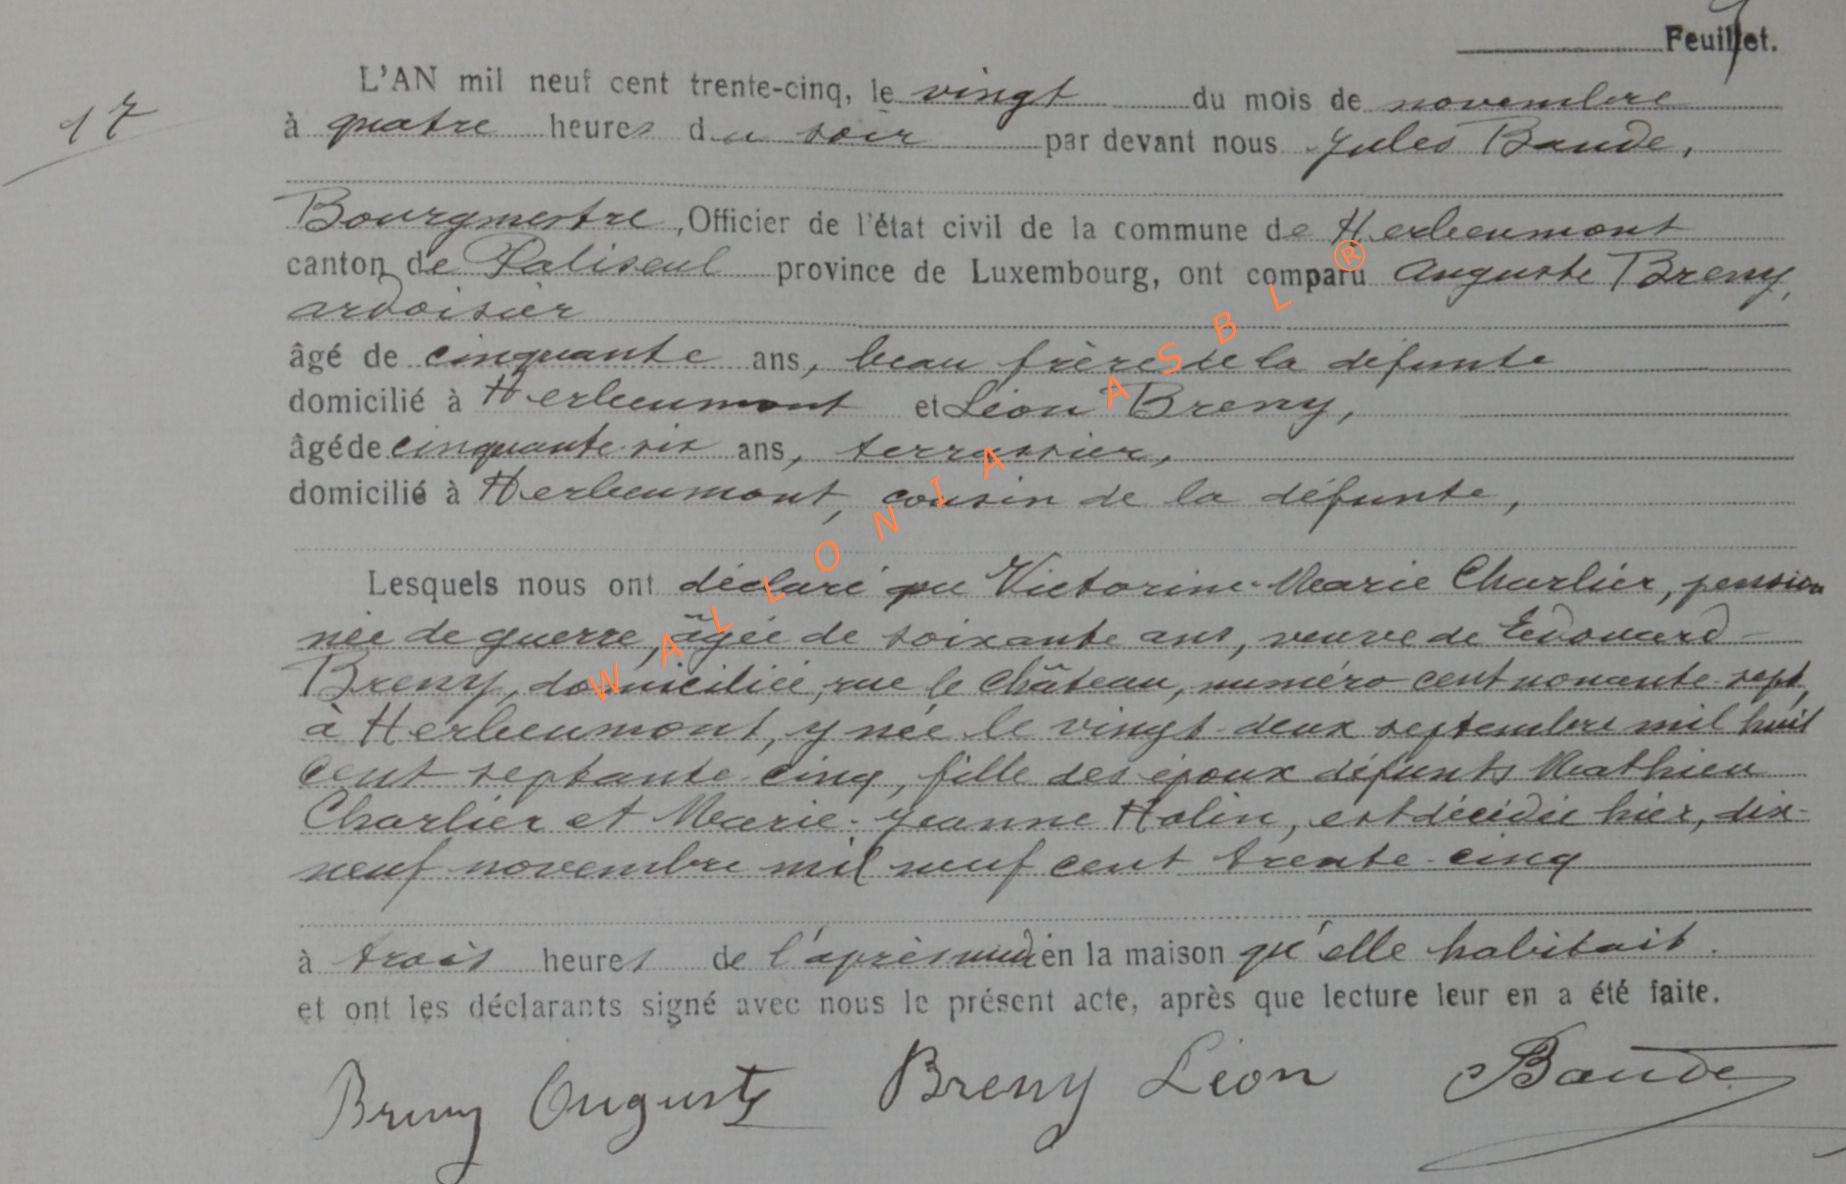 Feuillet.
17
L'AN mil neuf cent trente-cinq, le vingt du mois de novembre
à quatre heures du soir par devant nous Jules Baude,
Bourgmestre, Officier de l'état civil de la commune de Herbeumont
canton de Paliseul province de Luxembourg, ont comparu Auguste Breny,
ardoisier
âgé de cinquante ans, beau frère de la défunte
domicilié à Herbeumont et Léon Breny,
âgé de cinquante-six ans, terrassier,
domicilié à Herbeumont, cousin de la défunte,
Lesquels nous ont déclaré que Victorine-Marie Charlier, pension
née de guerre, âgée de soixante ans, veuve de Edouard
Breny, domiciliée, rue le Château, numéro cent nonante-sept,
à Herbeumont, y née le vingt-deux septembre mil huit
cent septante-cinq, fille des époux défunts Mathieu
Charlier et Marie-Jeanne Holin, est décédée hier, dix-
neuf novembre mil neuf cent trente-cinq
à trois heures de l'après midi en la maison qu'elle habitait.
et ont les déclarants signé avec nous le présent acte, après que lecture leur en a été faite.
Breny Auguste Breny Léon Baude
WALLONIA ASBL ®